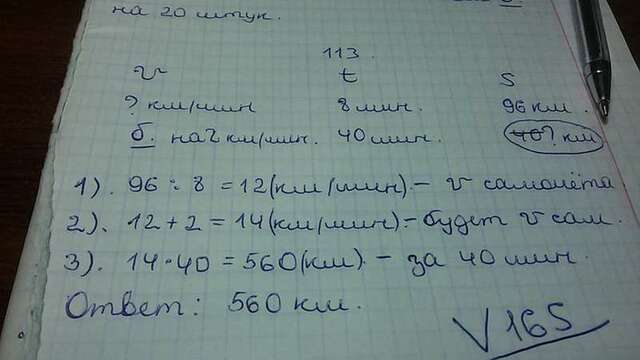 на 20 штук.
113.
v t S
? км/мин 8 мин. 96 км.
б. на 2 км/мин. 40 мин. 40? км
1). 96 : 8 = 12 (км/мин) – v самолёта
2). 12 + 2 = 14 (км/мин) – будет v сам.
3). 14 · 40 = 560 (км) – за 40 мин.
Ответ: 560 км.
V 165